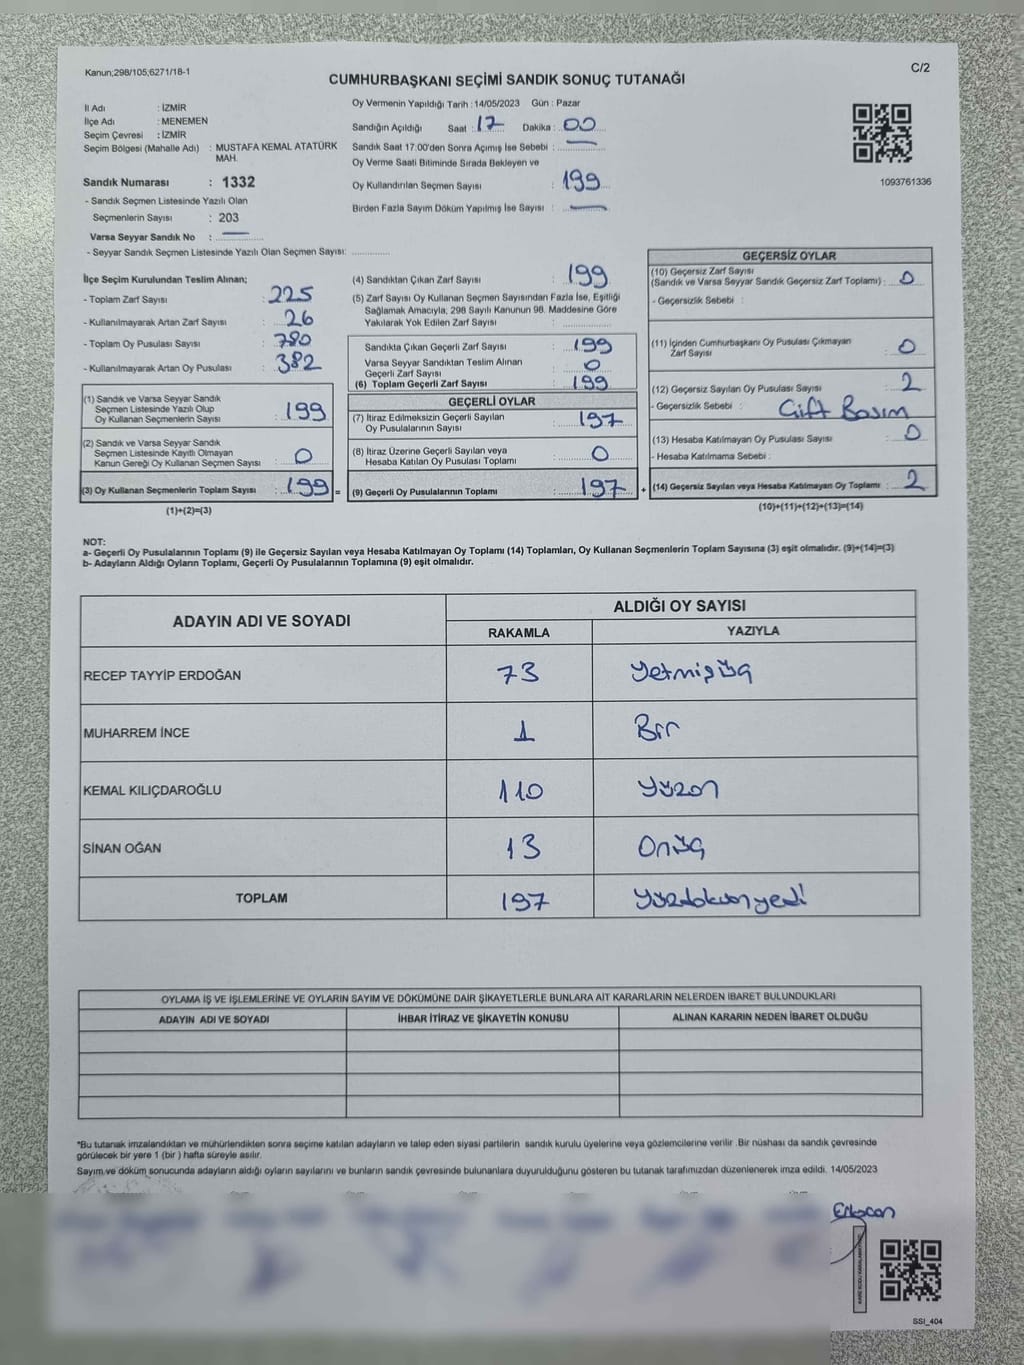 Kanun;298/105;6271/18-1
C/2
CUMHURBAŞKANI SEÇİMİ SANDIK SONUÇ TUTANAĞI
İl Adı : İZMİR
İlçe Adı : MENEMEN
Seçim Çevresi : İZMİR
Seçim Bölgesi (Mahalle Adı) : MUSTAFA KEMAL ATATÜRK
MAH.
Sandık Numarası : 1332
- Sandık Seçmen Listesinde Yazılı Olan
Seçmenlerin Sayısı : 203
Varsa Seyyar Sandık No :
- Seyyar Sandık Seçmen Listesinde Yazılı Olan Seçmen Sayısı:
Oy Vermenin Yapıldığı Tarih : 14/05/2023 Gün : Pazar
Sandığın Açıldığı Saat : 17 Dakika : 00
Sandık Saat 17:00'den Sonra Açımış İse Sebebi :
Oy Verme Saati Bitiminde Sırada Bekleyen ve
Oy Kullandırılan Seçmen Sayısı : 199
Birden Fazla Sayım Döküm Yapılmış İse Sayısı :
1093761336
İlçe Seçim Kurulundan Teslim Alınan;
- Toplam Zarf Sayısı : 225
- Kullanılmayarak Artan Zarf Sayısı : 26
- Toplam Oy Pusulası Sayısı : 780
- Kullanılmayarak Artan Oy Pusulası : 382
(1) Sandık ve Varsa Seyyar Sandık
Seçmen Listesinde Yazılı Olup
Oy Kullanan Seçmenlerin Sayısı : 199
(2) Sandık ve Varsa Seyyar Sandık
Seçmen Listesinde Kayıtlı Olmayan
Kanun Gereği Oy Kullanan Seçmen Sayısı : 0
(3) Oy Kullanan Seçmenlerin Toplam Sayısı : 199 =
(1)+(2)=(3)
(4) Sandıktan Çıkan Zarf Sayısı : 199
(5) Zarf Sayısı Oy Kullanan Seçmen Sayısından Fazla İse, Eşitliği
Sağlamak Amacıyla, 298 Sayılı Kanunun 98. Maddesine Göre
Yakılarak Yok Edilen Zarf Sayısı :
Sandıkta Çıkan Geçerli Zarf Sayısı : 199
Varsa Seyyar Sandıktan Teslim Alınan
Geçerli Zarf Sayısı : 0
(6) Toplam Geçerli Zarf Sayısı : 199
GEÇERLİ OYLAR
(7) İtiraz Edilmeksizin Geçerli Sayılan
Oy Pusulalarının Sayısı : 197
(8) İtiraz Üzerine Geçerli Sayılan veya
Hesaba Katılan Oy Pusulası Toplamı : 0
(9) Geçerli Oy Pusulalarının Toplamı : 197 +
GEÇERSİZ OYLAR
(10) Geçersiz Zarf Sayısı
(Sandık ve Varsa Seyyar Sandık Geçersiz Zarf Toplamı) : 0
- Geçersizlik Sebebi :
(11) İçinden Cumhurbaşkanı Oy Pusulası Çıkmayan
Zarf Sayısı : 0
(12) Geçersiz Sayılan Oy Pusulası Sayısı : 2
- Geçersizlik Sebebi : Çift Basım
(13) Hesaba Katılmayan Oy Pusulası Sayısı : 0
- Hesaba Katılmama Sebebi :
(14) Geçersiz Sayılan veya Hesaba Katılmayan Oy Toplamı : 2
(10)+(11)+(12)+(13)=(14)
NOT:
a- Geçerli Oy Pusulalarının Toplamı (9) ile Geçersiz Sayılan veya Hesaba Katılmayan Oy Toplamı (14) Toplamları, Oy Kullanan Seçmenlerin Toplam Sayısına (3) eşit olmalıdır. (9)+(14)=(3)
b- Adayların Aldığı Oyların Toplamı, Geçerli Oy Pusulalarının Toplamına (9) eşit olmalıdır.
ADAYIN ADI VE SOYADI ALDIĞI OY SAYISI
RAKAMLA YAZIYLA
RECEP TAYYİP ERDOĞAN 73 Yetmişüç
MUHARREM İNCE 1 Bir
KEMAL KILIÇDAROĞLU 110 Yüzon
SİNAN OĞAN 13 Onüç
TOPLAM 197 Yüzdoksanyedi
OYLAMA İŞ VE İŞLEMLERİNE VE OYLARIN SAYIM VE DÖKÜMÜNE DAİR ŞİKAYETLERLE BUNLARA AİT KARARLARIN NELERDEN İBARET BULUNDUKLARI
ADAYIN ADI VE SOYADI İHBAR İTİRAZ VE ŞİKAYETİN KONUSU ALINAN KARARIN NEDEN İBARET OLDUĞU
*Bu tutanak imzalandıktan ve mühürlendikten sonra seçime katılan adayların ve talep eden siyasi partilerin sandık kurulu üyelerine veya gözlemcilerine verilir .Bir nüshası da sandık çevresinde
görülecek bir yere 1 (bir ) hafta süreyle asılır.
Sayım ve döküm sonucunda adayların aldığı oyların sayılarını ve bunların sandık çevresinde bulunanlara duyurulduğunu gösteren bu tutanak tarafımızdan düzenlenerek imza edildi. 14/05/2023
SSI_404